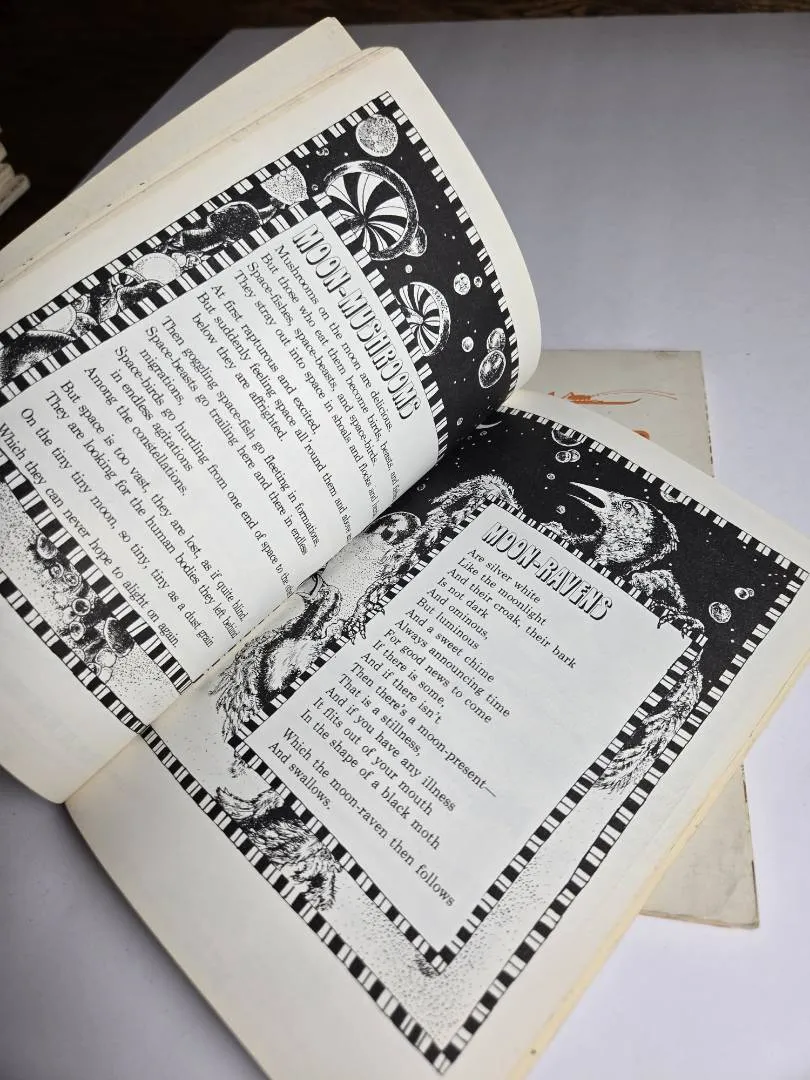 MOON-MUSHROOMS
Mushrooms on the moon are delicious.
But those who eat them become birds, beasts, and
Space-fishes, space-beasts, and space-birds.
They stray out into space in shoals and flocks and
At first rapturous and excited,
But suddenly feeling space all 'round them and above
below they are affrighted.
Then goggling space-fish go fleeting in formations,
Space-beasts go trailing here and there in endless
migrations,
Space-birds go hurtling from one end of space to the
in endless agitations
Among the constellations.
But space is too vast, they are lost, as if quite blind
They are looking for the human bodies they left behind
On the tiny tiny moon, so tiny, tiny as a dust grain
Which they can never hope to alight on again.
MOON-RAVENS
Are silver white
Like the moonlight
And their croak, their bark
Is not dark
And ominous,
But luminous
And a sweet chime
Always announcing time
For good news to come
If there is some,
And if there isn't
Then there's a moon-present—
That is a stillness,
And if you have any illness
It flits out of your mouth
In the shape of a black moth
Which the moon-raven then follows
And swallows.